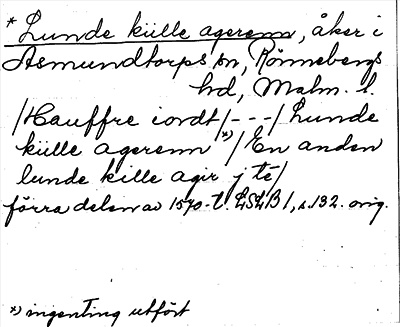 *Lunde külle agerenn, åker i
Asmundtorps sn, Rönnebergs
hd, Malm. l.
/Hauffre iordt/---/Lunde
külle agerenn *)/En anden
lunde kille agir j té/
förra delen av 1570-t. LSLB1, s.132. orig.
*) ingenting utfört